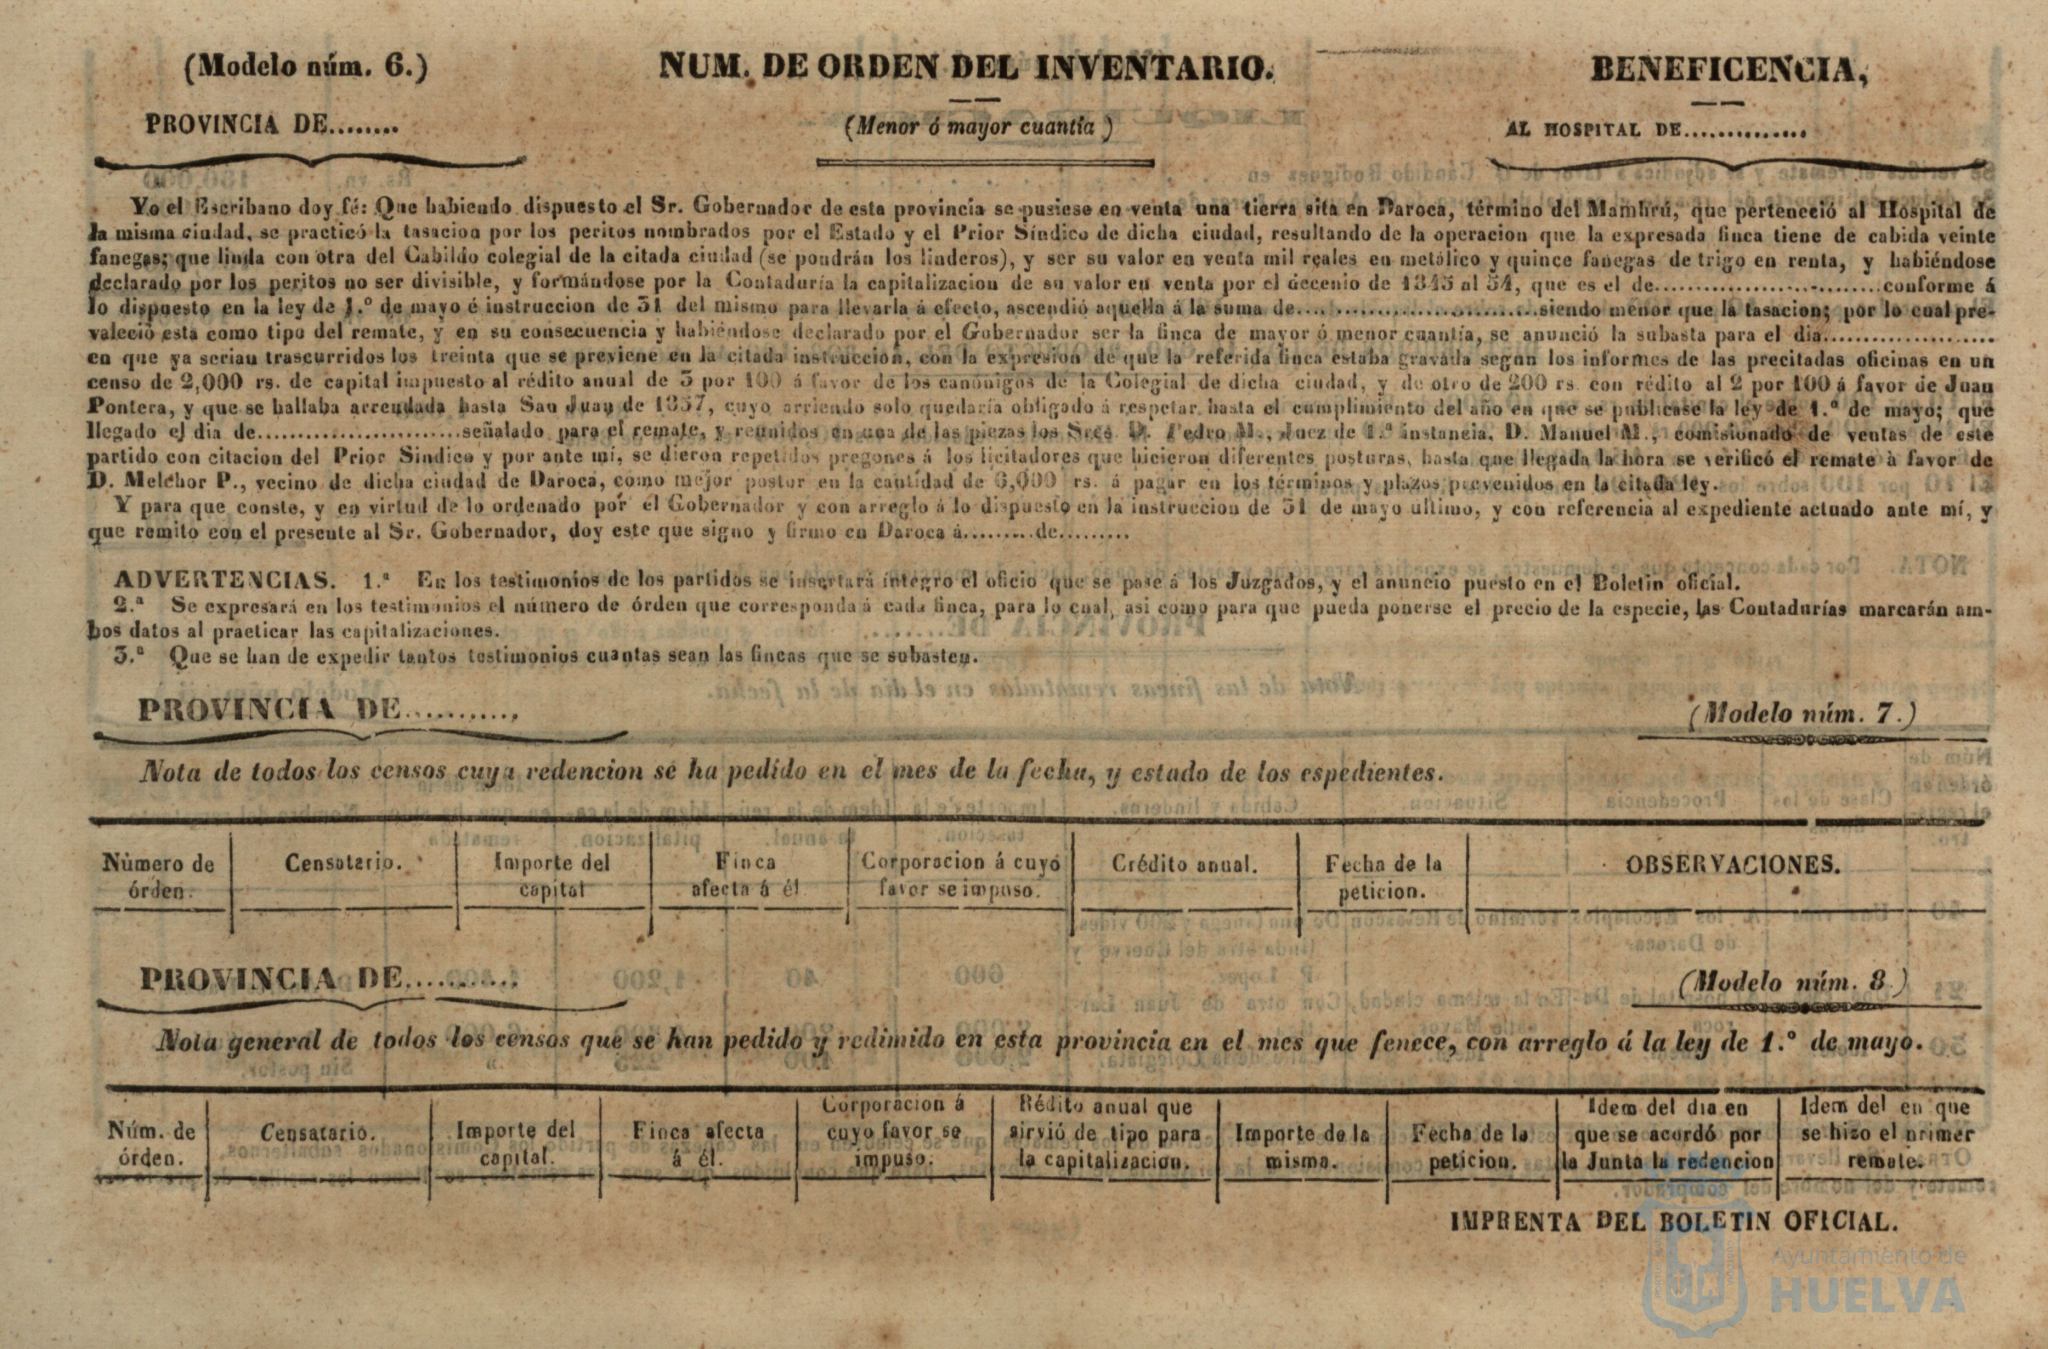 (Modelo núm. 6.)
NUM. DE ORDEN DEL INVENTARIO.
BENEFICENCIA,
PROVINCIA DE........
(Menor ó mayor cuantía )
AL HOSPITAL DE..............
Yo el Escribano doy fé: Que habiendo dispuesto el Sr. Gobernador de esta provincia se pusiese en venta una tierra sita en Daroca, término del Mambrú, que perteneció al Hospital de
la misma ciudad, se practicó la tasacion por los peritos nombrados por el Estado y el Prior Síndico de dicha ciudad, resultando de la operacion que la expresada finca tiene de cabida veinte
fanegas; que linda con otra del Cabildo colegial de la citada ciudad (se pondrán los linderos), y ser su valor en venta mil reales en metálico y quince fanegas de trigo en renta, y habiéndose
declarado por los peritos no ser divisible, y formándose por la Contaduría la capitalizacion de su valor en venta por el decenio de 1845 al 54, que es el de............................conforme á
lo dispuesto en la ley de 1.º de mayo é instruccion de 31 del mismo para llevarla á efecto, ascendió aquella á la suma de..............................siendo menor que la tasacion; por lo cual pre-
valeció esta como tipo del remate, y en su consecuencia y habiéndose declarado por el Gobernador ser la finca de mayor ó menor cuantía, se anunció la subasta para el dia.....................
en que ya serian trascurridos los treinta que se previene en la citada instruccion, con la expresion de que la referida finca estaba gravada segun los informes de las precitadas oficinas en un
censo de 2,000 rs. de capital impuesto al rédito anual de 3 por 100 á favor de los canónigos de la Colegial de dicha ciudad, y de otro de 200 rs. con rédito al 2 por 100 á favor de Juan
Pontera, y que se hallaba arrendada hasta San Juan de 1857, cuyo arriendo solo quedaría obligado á respetar hasta el cumplimiento del año en que se publicase la ley de 1.º de mayo; que
llegado el dia de.........................señalado para el remate, y reunidos en una de las piezas los Sres. D. Pedro M., Juez de 1.ª instancia, D. Manuel M., comisionado de ventas de este
partido con citacion del Prior Sindico y por ante mí, se dieron repetidos pregones á los licitadores que hicieron diferentes posturas, hasta que llegada la hora se verificó el remate à favor de
D. Melchor P., vecino de dicha ciudad de Daroca, como mejor postor en la cantidad de 6,000 rs. á pagar en los términos y plazos prevenidos en la citada ley.
Y para que conste, y en virtud de lo ordenado por el Gobernador y con arreglo á lo dispuesto en la instruccion de 31 de mayo ultimo, y con referencia al expediente actuado ante mí, y
que remito con el presente al Sr. Gobernador, doy este que signo y firmo en Daroca á.........de.........
ADVERTENCIAS. 1.ª En los testimonios de los partidos se insertará íntegro el oficio que se pase á los Juzgados, y el anuncio puesto en el Boletin oficial.
2.ª Se expresará en los testimonios el número de órden que corresponda á cada finca, para lo cual, asi como para que pueda ponerse el precio de la especie, las Contadurías marcarán am-
bos datos al practicar las capitalizaciones.
3.ª Que se han de expedir tantos testimonios cuantas sean las fincas que se subasten.
PROVINCIA DE...........
(Modelo núm. 7.)
Nota de todos los censos cuya redencion se ha pedido en el mes de la fecha, y estado de los espedientes.
Número de órden.
Censatario.
Importe del capital
Finca afecta á él.
Corporacion á cuyo favor se impuso.
Crédito anual.
Fecha de la peticion.
OBSERVACIONES.
PROVINCIA DE..........
(Modelo núm. 8.)
Nota general de todos los censos que se han pedido y redimido en esta provincia en el mes que fenece, con arreglo á la ley de 1.º de mayo.
Núm. de órden.
Censatario.
Importe del capital.
Finca afecta á él.
Corporacion á cuyo favor se impuso.
Rédito anual que sirvió de tipo para la capitalizacion.
Importe de la misma.
Fecha de la peticion.
Idem del dia en que se acordó por la Junta la redencion
Idem del en que se hizo el primer remate.
IMPRENTA DEL BOLETIN OFICIAL.
Ayuntamiento de
HUELVA